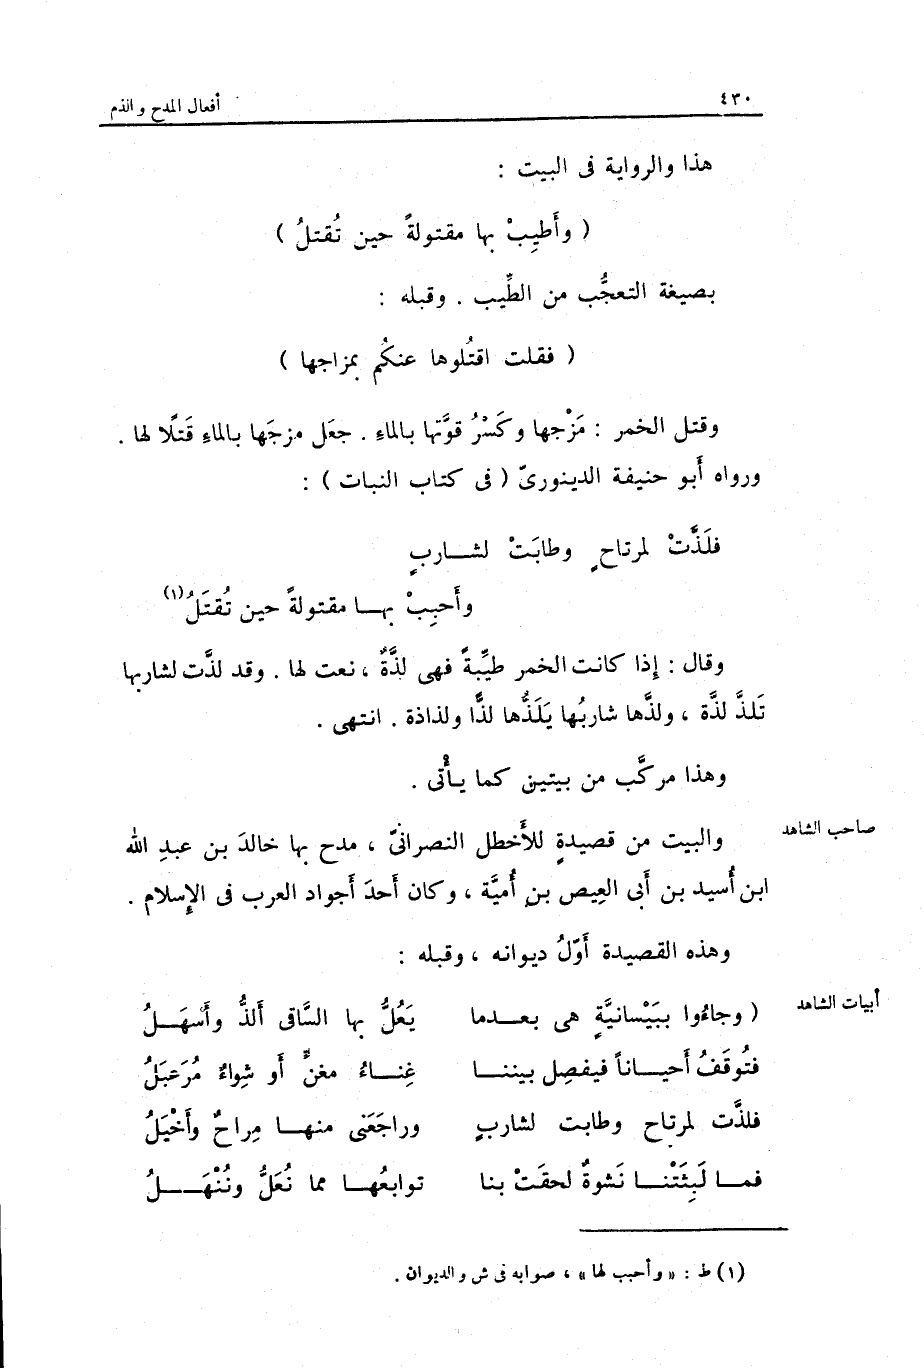 ٤٣٠ أفعال المدح والذم
هذا والرواية فى البيت :
( وأَطيِبْ بها مقتولةً حين تُقتلُ )
بصيغة التعجُّب من الطِّيب . وقبله :
( فقلت اقتُلوها عنكُم بمزاجها )
وقتل الخمر : مَزْجها وكَسْرُ قوَّتها بالماء . جعَل مزجَها بالماءِ قَتلًا لها .
ورواه أَبو حنيفة الدينورىّ ( فى كتاب النبات ) :
فلَذَّتْ لمرتاحٍ وطابَتْ لشـــاربٍ
وأَحبِبْ بهــا مقتولةً حين تُقتَلُ(١)
وقال : إِذا كانت الخمر طيِّبةً فهى لذَّةٌ ، نعت لها . وقد لذَّت لشاربها
تَلذَّ لذَّة ، ولذَّها شاربُها يَلَذُّها لذًّا ولذاذة . انتهى .
وهذا مركَّب من بيتين كما يأْتى .
صاحب الشاهد
والبيت من قصيدةٍ للأَخطل النصرانىّ ، مدح بها خالدَ بن عبدِ الله
ابن أُسيد بن أَبى العِيص بنِ أُميَّة ، وكان أَحدَ أَجواد العرب فى الإِسلام .
وهذه القصيدة أَوّلُ ديوانه ، وقبله :
أبيات الشاهد
( وجاءُوا ببَيْسانيَّةٍ هى بعــدما يَعُلُّ بها السَّاقى أَلذُّ وأَسهَــلُ
فتُوقَفُ أَحيــاناً فيفصِل بيننــا غِنــاءُ مغنٍّ أَو شِواءٌ مُرَعبَلُ
فلذَّت لمرتاح وطابت لشاربٍ وراجَعَنى منهــا مِراحٌ وأَخْيَلُ
فمــا لَبِثَتْنــا نَشوةٌ لحقَتْ بنا توابعُهــا مما نُعَلُّ ونُنْهَــلُ
(١) ط : « وأحبب لها » ، صوابه فى ش والديوان .